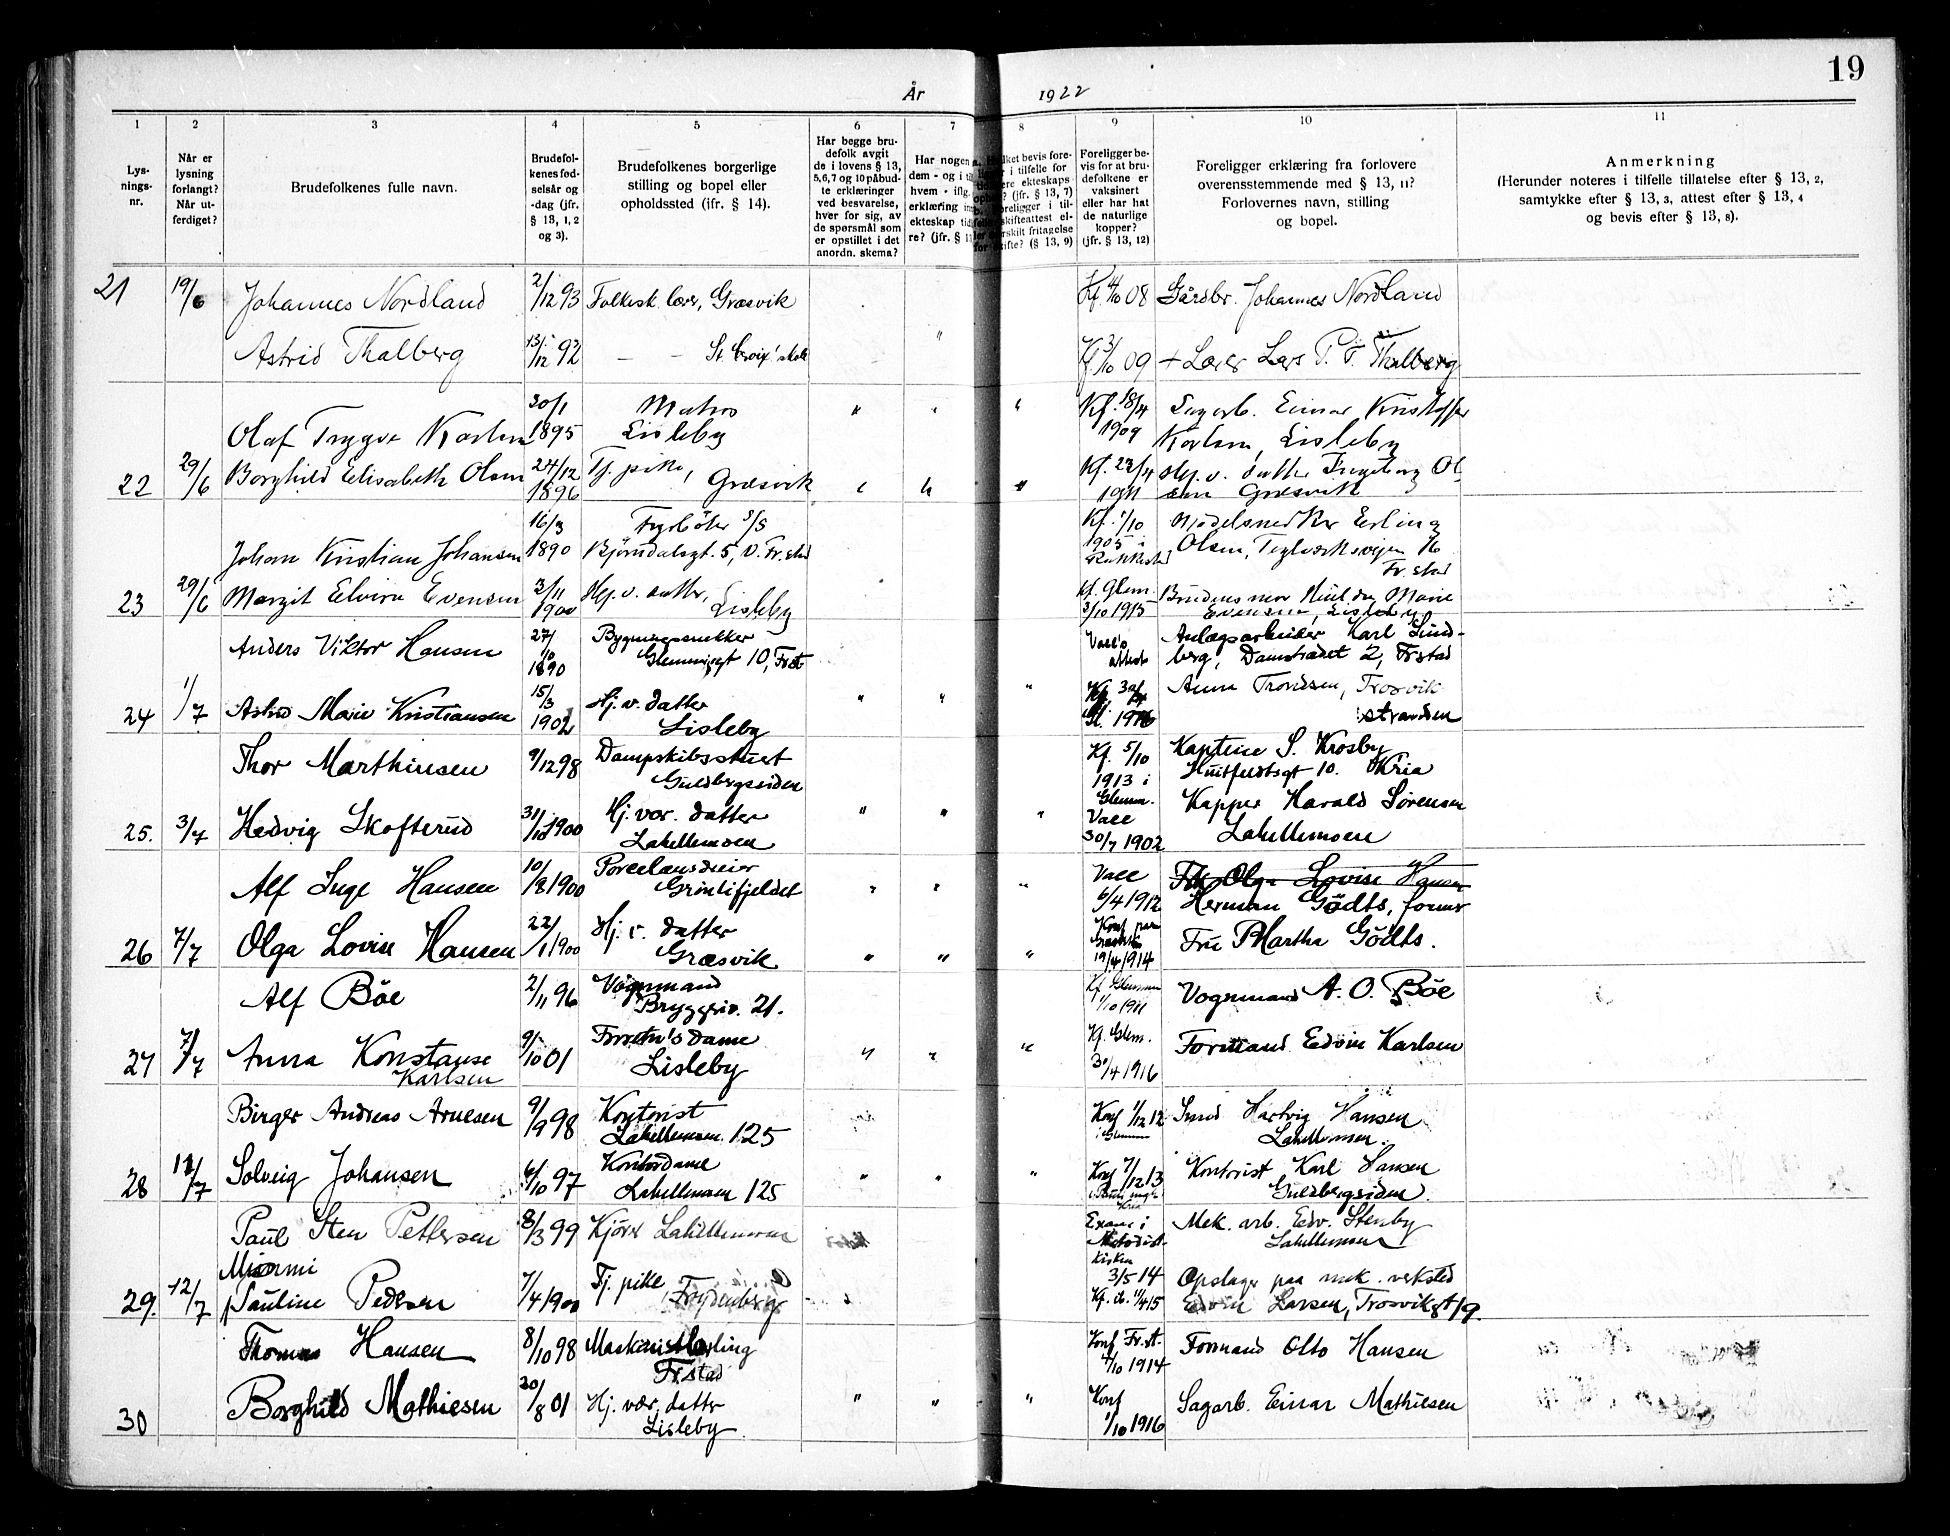 19
År 1922
1 2 3 4 5 6 7 8 9 10 11
Lys-
nings-
nr.
Når er
lysning
forlangt?
Når ut-
ferdiget?
Brudefolkenes fulle navn.
Brudefol-
kenes fød-
selsår og
-dag (jfr.
§ 13, 1, 2
og 3).
Brudefolkenes borgerlige
stilling og bopel eller
opholdssted (ifr. § 14).
Har begge bru-
defolk avgit
de i lovens § 13,
5, 6, 7 og 10 påbud-
te erklæringer
ved besvarelse,
hver for sig, av
de spørsmål som
er opstillet i det
anordn. skema?
Har nogen a
dem - og i til
hvem - iflg.
erklæring in
ekteskap tid
re? (jfr. § 1
ket bevis fore-
i tilfelle for
ere ekteskaps
? (jfr. § 13, 7)
b. oreligger i til-
skifteattest el-
rskilt fritagelse
for skifte? (§ 13, 9)
Foreligger be-
vis for at bru-
defolkene er
vaksinert
eller har hat
de naturlige
kopper?
(jfr. § 13, 12)
Foreligger erklæring fra forlovere
overensstemmende med § 13, 11?
Forlovernes navn, stilling
og bopel.
Anmerkning
(Herunder noteres i tilfelle tillatelse efter § 13, 2,
samtykke efter § 13, 3, attest efter § 13, 4
og bevis efter § 13, 8).
21 19/6 Johannes Nordland 2/12 93 Folkesk. lærer, Græsvik 08 Gårdbr. Johannes Nordland
Astrid Thalberg 13/12 92 — — St. Croix' skole " 3/10 09 + Lærer Lars P. T. Thalberg
30/1 Matros " " " Kf. 18/4 Sagarb. Einar Kristoffer
Olaf Trygve Karlsen 1895 Lisleby 1909 Karlsen, Lisleby
22 29/6 Borghild Elisabeth Olsen 24/12 Tj. pike, Græsvik " " " Kf. 23/4 Hj. v. datter Ingeborg Ol-
1896 1911 sen Græsvik
16/3 Fyrbøter s/s Kf. 1/10 Modelsnedker Erling
Johan Kristian Johansen 1890 Bjørndalsgt. 5, V. Fr.stad 1905 i Olsen, Teglverksveien 76
Rakkestad Fr.stad
23 29/6 Margit Elvira Evensen 3/11 Hj. v. datter, Kf. Glem. Brudens mor Huldra Marie
1900 Lisleby 3/10 1915 Evensen, Lisleby
27/ Bygningssnekker Vacc's Anlægsarbeider Karl Lund-
Anders Viktor Hansen 10 Glemmingt 10, Fr.st. attest berg, Damstrædet 2, Fr.stad
1890
24 1/7 Astrid Marie Kristiansen 15/3 Hj. v. datter " " " Anna Trondsen, Trosvik-
1902 Lisleby Gl. 1916 stranden
Thor Marthinsen 9/12 98 Dampskibsstuert Kf. 5/10 Kaptein S. Krosby
Guldbergsiden 1913 i Huitfeldtsgt 10. Kria
Glemm.
25. 3/7 Hedvig Skofterud 31/10 1900 Hj. vær. datter " " " Vacc Kapper Harald Sørensen
Lahellemoen 30/7 1902 Lahellemoen
10/8 1900 Porcelænsdreier Vacc Frk Olga Lovise Hansen
Alf Inge Hansen Grønlifjeldet " " " 6/4 1912 Herman Gödts, former
26 7/7 Olga Lovise Hansen 22/1 1900 Hj. v. datter Konf paa Fru Martha Gödts.
Græsvik " " " 19/4 1914
Alf Böe 2/11 96 Vognmand Kf. Glemmen Vognmand A. O. Böe
Bryggeriv. 21. 1/10 1911
27 7/7 Anna Konstanse 9/10 01 Forretn's dame " " " Kf. Glem. Formand Edvin Karlsen
Karlsen Lisleby 30/4 1916
Birger Andreas Arnesen 9/9 98 Kontorist Konf 1/12 12 Smed Hartvig Hansen
Lahellemoen 125 i Glemmen Lahellemoen.
28 11/7 Solveig Johansen 6/10 97 Kontordame " " " Konf 7/12 13 Kontorist Karl Hansen
Lahellemoen 125 Kria Guldbergsiden.
Paul Sten Pettersen 8/3 99 Kjører Lahellemoen Exam i Mek. arb. Edv. Stenby
Metodist- Lahellemoen
kirken
Mimmi 3/5 14 Opslager paa mek. verksted
29. 12/7 Pauline Pedersen 7/4 1900 Tj. pike, Frydenberg Kf. 11/4 15 Edvin Larsen, Trosvikgt 19.
Thomas Hansen 8/10 98 Maskinistlærling Konf Fr.st. Formand Otto Hansen
Fr.stad 4/10 1914
30 Borghild Mathiesen 20/8 01 Hj. vær. datter " " " Konf Sagarb. Einar Mathiesen
Lisleby 1/10 1916